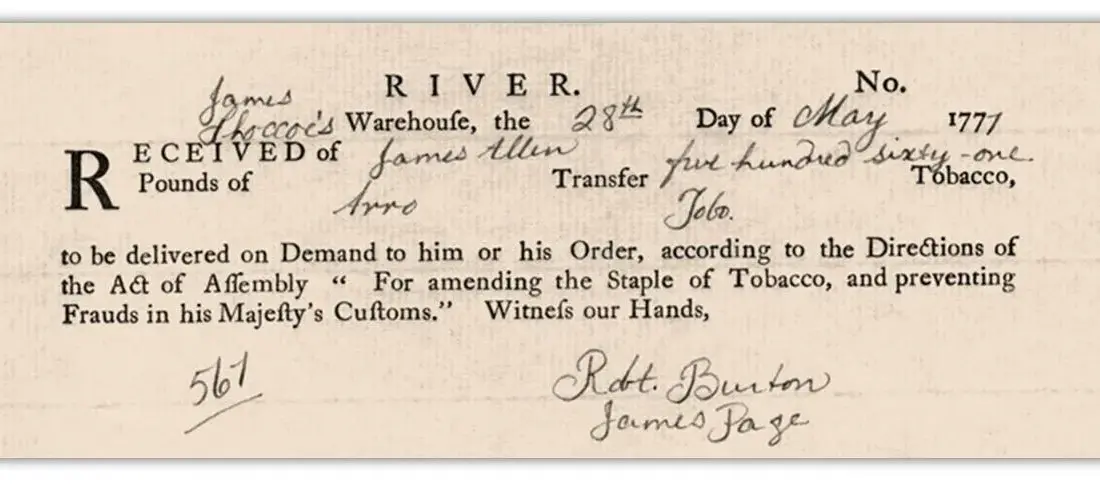 James RIVER. No.
Shoccoe's Warehouſe, the 28th Day of May 1777
RECEIVED of James Allen five hundred sixty-one.
Pounds of Arro Transfer Tobo. Tobacco,
to be delivered on Demand to him or his Order, according to the Directions of
the Act of Aſſembly “ For amending the Staple of Tobacco, and preventing
Frauds in his Majeſty's Cuſtoms.” Witneſs our Hands,
561 Robt. Burton
James Page